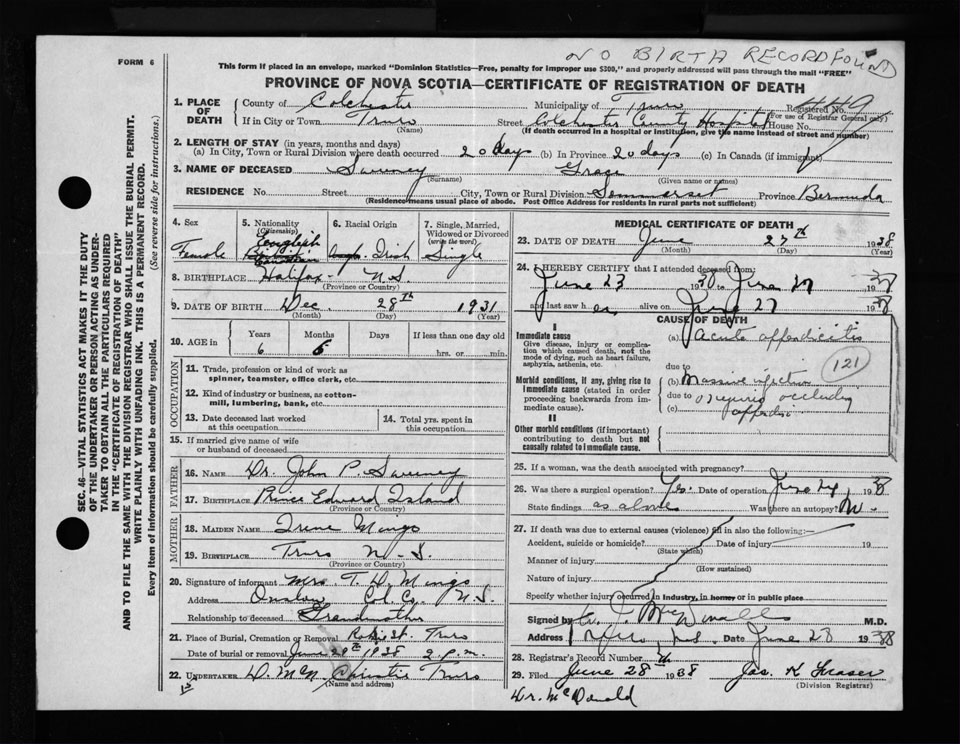 NO BIRTH RECORD FOUND
FORM 6
This form if placed in an envelope, marked "Dominion Statistics—Free, penalty for improper use $300," and properly addressed will pass through the mail "FREE"
PROVINCE OF NOVA SCOTIA—CERTIFICATE OF REGISTRATION OF DEATH
1. PLACE OF DEATH
County of Colchester Municipality of Truro Registered No.
(For use of Registrar General only)
If in City or Town Truro Street Colchester County Hospital House No.
(Name) (If death occurred in a hospital or institution, give the name instead of street and number)
2. LENGTH OF STAY (in years, months and days)
(a) In City, Town or Rural Division where death occurred 20 days (b) In Province 20 days (c) In Canada (if immigrant)
3. NAME OF DECEASED Sweeney Grace
(Surname) (Given name or names)
RESIDENCE No. Street City, Town or Rural Division Sommerset Province Bermuda
(Residence means usual place of abode. Post Office Address for residents in rural parts not sufficient)
SEC. 46—VITAL STATISTICS ACT MAKES IT THE DUTY
OF THE UNDERTAKER OR PERSON ACTING AS UNDER-
TAKER TO OBTAIN ALL THE PARTICULARS REQUIRED
IN THE "CERTIFICATE OF REGISTRATION OF DEATH"
AND TO FILE THE SAME WITH THE DIVISION REGISTRAR WHO SHALL ISSUE THE BURIAL PERMIT.
WRITE PLAINLY WITH UNFADING INK. THIS IS A PERMANENT RECORD.
Every item of information should be carefully supplied. (See reverse side for instructions.)
4. Sex
Female
5. Nationality
(Citizenship)
English
6. Racial Origin
Irish
7. Single, Married, Widowed or Divorced
(write the word)
Single
8. BIRTHPLACE Halifax N.S
(Province or Country)
9. DATE OF BIRTH Dec. 28th 1931
(Month) (Day) (Year)
10. AGE in
Years 6
Months 6
Days
If less than one day old
hrs. or min.
OCCUPATION
11. Trade, profession or kind of work as
spinner, teamster, office clerk, etc.
12. Kind of industry or business, as cotton-
mill, lumbering, bank, etc.
13. Date deceased last worked
at this occupation
14. Total yrs. spent in
this occupation
15. If married give name of wife
or husband of deceased
FATHER
16. NAME Dr. John P. Sweeney
17. BIRTHPLACE Prince Edward Island
(Province or Country)
MOTHER
18. MAIDEN NAME Irene Mingo
19. BIRTHPLACE Truro N.S.
(Province or Country)
20. Signature of informant Mrs. T. D. Mingo
Address Onslow Col. Co. N.S.
Relationship to deceased Grandmother
21. Place of Burial, Cremation or Removal Robie St. Truro
Date of burial or removal June 29th 1938 2 p.m.
22. UNDERTAKER D. McN. Christie Truro
(Name and address)
MEDICAL CERTIFICATE OF DEATH
23. DATE OF DEATH June 27th 1938
(Month) (Day) (Year)
24. I HEREBY CERTIFY that I attended deceased from:
June 23 1938 to June 27 1938
and last saw her alive on June 27 1938
CAUSE OF DEATH
I
Immediate cause
Give disease, injury or complica-
tion which caused death, not the
mode of dying, such as heart failure,
asphyxia, asthenia, etc.
(a) Acute appendicitis
121
due to
Morbid conditions, if any, giving rise to
immediate cause (stated in order
proceeding backwards from im-
mediate cause).
(b) Massive infection
due to
(c)
II
Other morbid conditions (if important)
contributing to death but not
causally related to immediate cause.
25. If a woman, was the death associated with pregnancy?
26. Was there a surgical operation? Yes. Date of operation June 24 1938
State findings as above Was there an autopsy? No.
27. If death was due to external causes (violence) fill in also the following:
Accident, suicide or homicide? Date of injury 19
(State which)
Manner of injury
(How sustained)
Nature of injury
Specify whether injury occurred in industry, in home, or in public place
Signed by McDonald M.D.
Address Truro N.S. Date June 28 1938
28. Registrar's Record Number
29. Filed June 28 1938 Jas. K Fraser
(Division Registrar)
Dr. McDonald